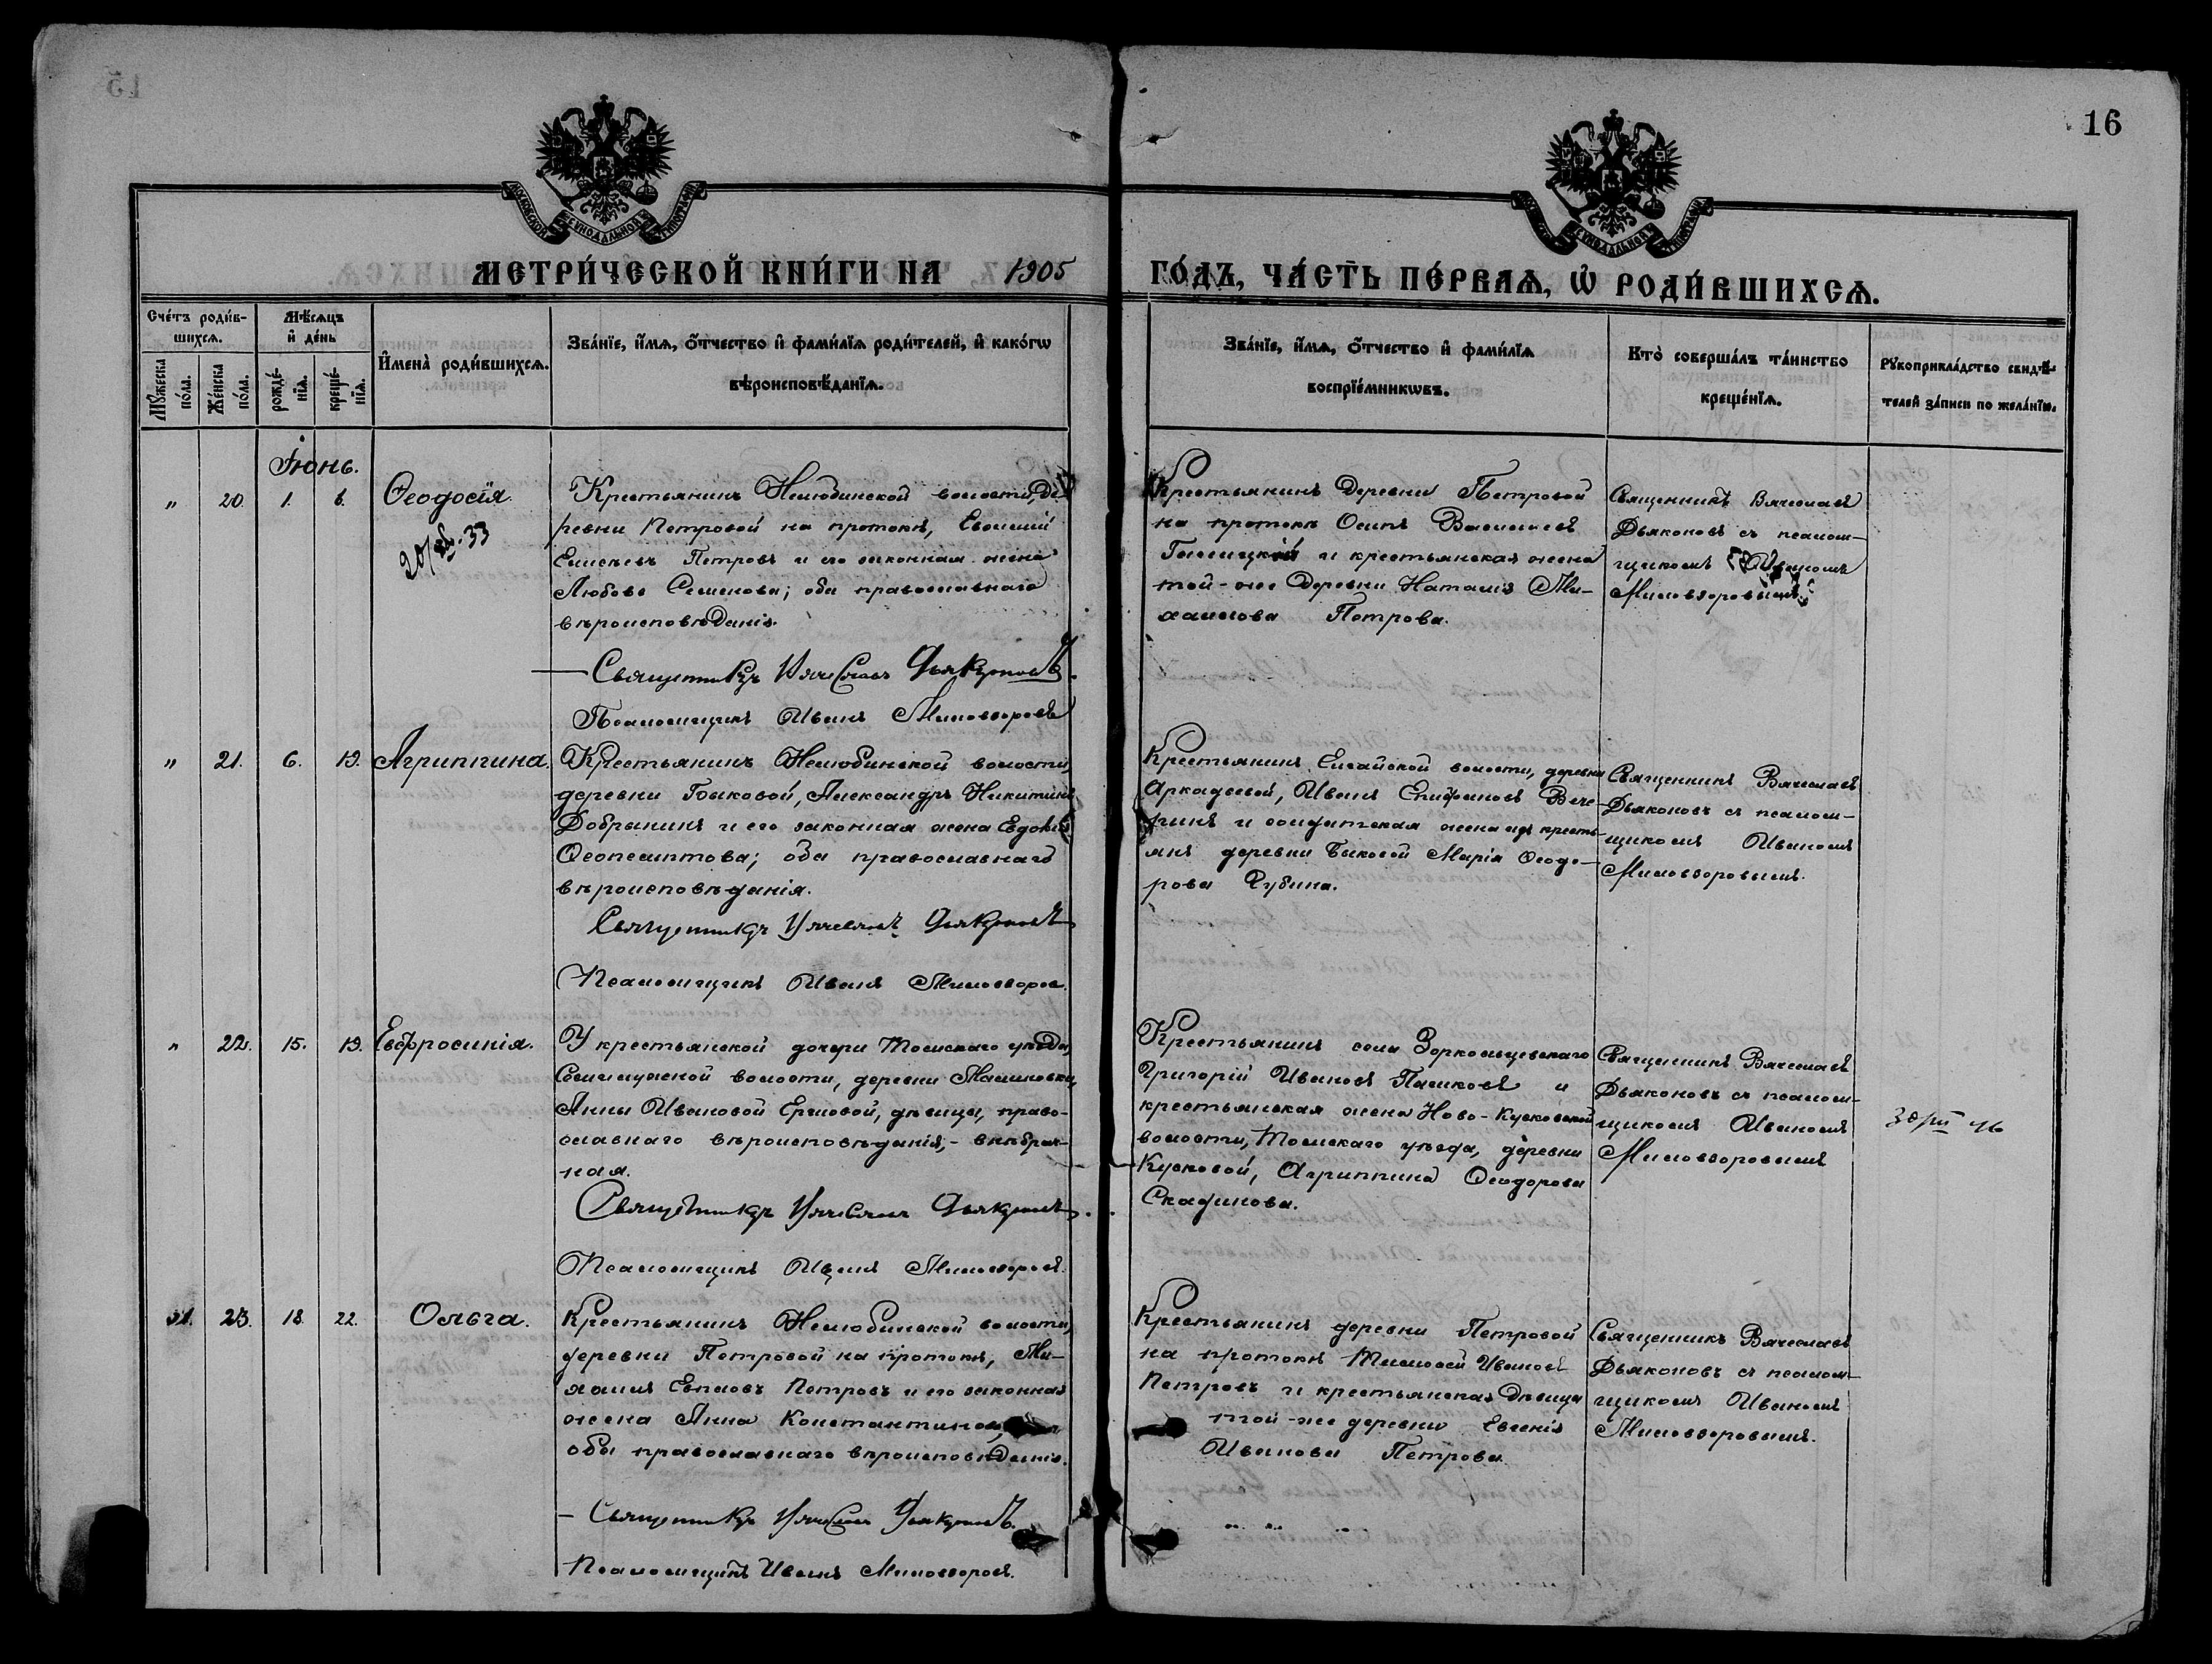 16
МЕТРИ́ЧЕСКОЙ КНИ́ГИ НА 1905 ГО́ДЪ, ЧА́СТЬ ПЕ́РВАѦ, Ѡ҆ РОДИ́ВШИХСѦ.
Сче́тъ роди́в-
шихсѧ.
Мꙋ́жеска
по́ла.
Же́нска
по́ла.
Мѣ́сѧцъ
и҆ де́нь
рожде́-
нїѧ.
креще́-
нїѧ.
И҆мена̀ роди́вшихсѧ.
Зва́нїе, и҆́мѧ, ѻ҆́тчество и҆ фами́лїѧ роди́телей, и҆ како́гѡ
вѣроисповѣ́данїѧ.
Зва́нїе, и҆́мѧ, ѻ҆́тчество и҆ фами́лїѧ
воспрїе́мникѡвъ.
Кто̀ соверша́лъ та́инство
креще́нїѧ.
Рꙋкоприкла́дство свидѣ́-
телей за́писи по жела́нїю.
Іюнь.
" 20. 1. 6. Ѳеодосія.
Крестьянинъ Нелюбинской волости, де-
ревни Петровой на протокѣ, Евгений
Елисѣевъ Петровъ и его законная жена
Любовь Семенова; оба православнаго
вѣроисповѣданія.
Священникъ Вячеславъ Дьяконовъ.
Псаломщикъ Иванъ Миловзоровъ
Крестьянинъ деревни Петровой
на протокѣ Осипъ Васильевъ
Галицкій и крестьянская жена
той-же деревни Наталія Ми-
хаилова Петрова.
Священникъ Вячеславъ
Дьяконовъ съ псалом-
щикомъ Иваномъ
Миловзоровымъ.
" 21. 6. 19. Агриппина.
Крестьянинъ Нелюбинской волости,
деревни Быковой, Александръ Никитинъ
Добрынинъ и его законная жена Евдокія
Ѳеопемптова; оба православнаго
вѣроисповѣданія.
Священникъ Вячеславъ Дьяконовъ
Псаломщикъ Иванъ Миловзоровъ.
Крестьянинъ Елгайской волости, деревни
Аркадьевой, Иванъ Епифановъ Вече-
ринъ и солдатская жена изъ кресть-
янъ деревни Быковой Марія Ѳеодо-
рова Губина.
Священникъ Вячеславъ
Дьяконовъ съ псалом-
щикомъ Иваномъ
Миловзоровымъ.
" 22. 15. 19. Евфросинія.
У крестьянской дочери Томскаго уѣзда,
Семилужной волости, деревни Малиновки,
Анны Ивановой Ершовой, дѣвицы, право-
славнаго вѣроисповѣданія, - внѣбрач-
ная.
Священникъ Вячеславъ Дьяконовъ.
Псаломщикъ Иванъ Миловзоровъ.
Крестьянинъ села Зоркольцевскаго
Григорій Ивановъ Пашковъ и
крестьянская жена Ново-Кусковской
волости, Томскаго уѣзда, деревни
Кусковой, Агриппина Ѳеодорова
Скафинова.
Священникъ Вячеславъ
Дьяконовъ съ псалом-
щикомъ Иваномъ
Миловзоровымъ
23. 18. 22. Ольга.
Крестьянинъ Нелюбинской волости,
деревни Петровой на протокѣ, Ми-
хаилъ Евпловъ Петровъ и его законная
жена Анна Константинова,
оба православнаго вѣроисповѣданія.
Священникъ Вячеславъ Дьяконовъ.
Псаломщикъ Иванъ Миловзоровъ.
Крестьянинъ деревни Петровой
на протокѣ Тимофей Ивановъ
Петровъ и крестьянская дѣвица
той-же деревни Евгенія
Иванова Петрова.
Священникъ Вячеславъ
Дьяконовъ съ псалом-
щикомъ Иваномъ
Миловзоровымъ.